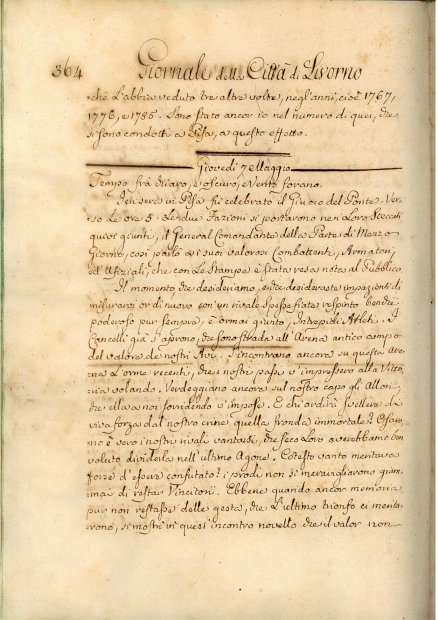 364 Giornale della Città di Livorno
che l'abbia veduto tre altre volte, negl'anni, cioè 1767,
1776, e 1785. Sono stato ancor io nel numero di quei, che
si sono condotti a Pisa, a questo effetto.
Giovedì 7 Maggio
Tempo frà chiaro, e oscuro, e Vento forano.
Jeri sera in Pisa, fù celebrato il Giuoco del Ponte. Ver-
so le ore 5. Le due Fazioni si portavono ne i Loro Steccati
quivi giunti, il General Comandante della Parte di Mezzo-
Giorno, così parlò a i suoi valorosi Combattenti, Armatori,
ed Ufiziali, che con Le Stampe è stata resa nota al Pubblico
Il momento che desideviamo, e che desideraste impazienti di
misurarvi or di nuovo con un rivale spesse fiate respinto benche
poderoso pur sempre, è ormai giunto, Intrepidi Atleti. I
Cancelli già s'aprono, che sono strada all'Arena antico campo
del valore de nostri Avi, s'incontrano ancora su questa Are-
na L'orme recenti, che i nostri passi v'impressero alla Vitto-
ria volando. Verdeggiano ancora sul nostro capo gli Allori,
che ella a noi sorridendo v'impose. E chi ardirà svellere da
viva forza dal nostro crine quella fronda immortale? Osaro-
no è vero i nostri rivali vantarsi, che seco Loro averebbamo con
voluto dividerla nell'ultimo Agone. Cotesto vanto meritava
forse d'essere confutato? i prodi non si meravigliarono giam-
mai di restar Vincitori. Ebbene quando ancor memoria
pur non restasse delle gesta, che L'ultimo trionfo ci merita-
rono, si mostri in quest' incontro novello che il valor non-